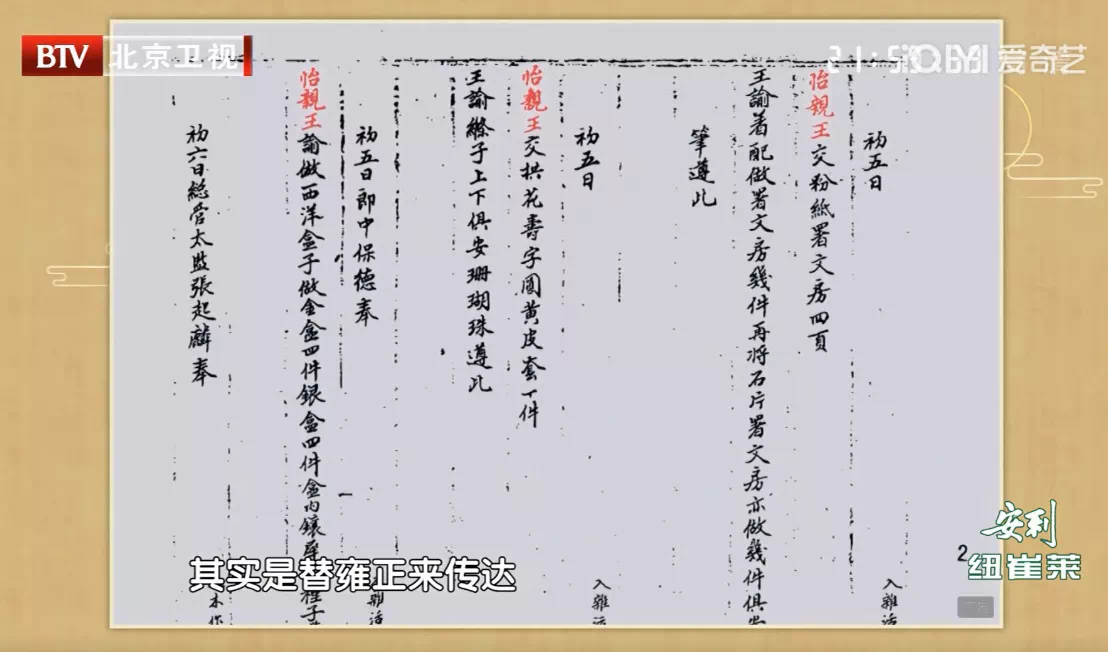 BTV 北京卫视
爱奇艺
初五日
怡親王交粉紙畧文房四頁
入雜活
王諭着配做畧文房幾件再將石片畧文房亦做幾件俱
筆遵此
初五日
入雜活
怡親王交拱花壽字圓黃皮套一件
王諭縧子上下俱安珊瑚珠遵此
初五日郎中保德奉
雜活
怡親王諭做西洋盒子做金盒四件銀盒四件盒內鑲
初六日總管太監張起麟奉
木作
其实是替雍正来传达
安利
纽崔莱
2